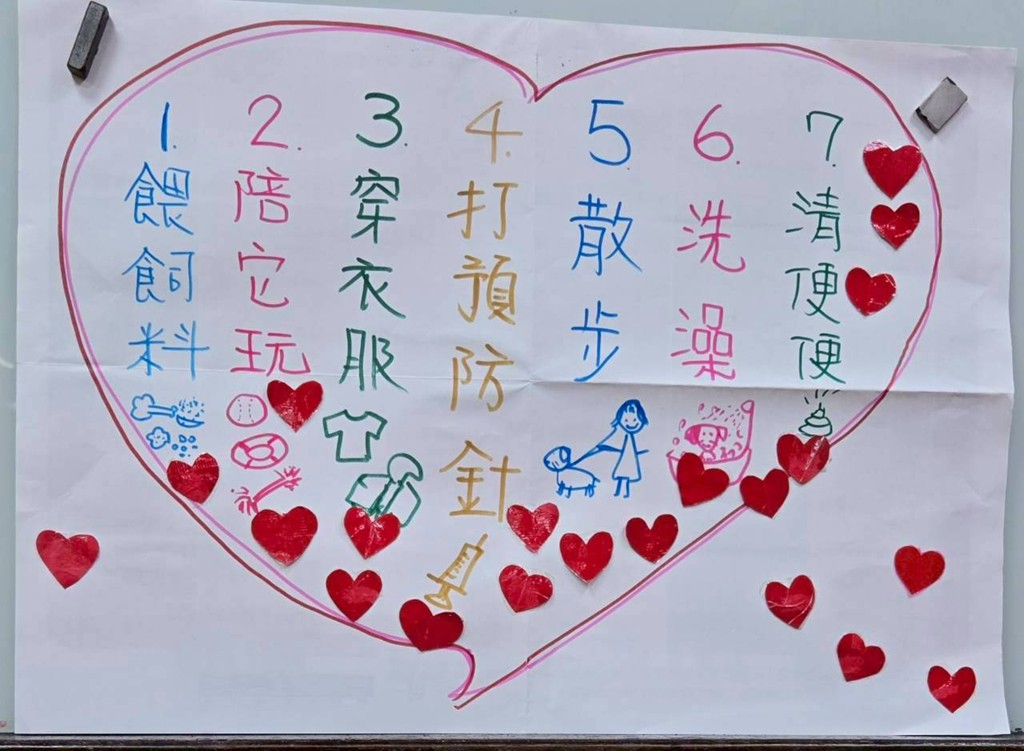 1. 餵飼料
2. 陪它玩
3. 穿衣服
4. 打預防針
5 散步
6. 洗澡
7. 清便便